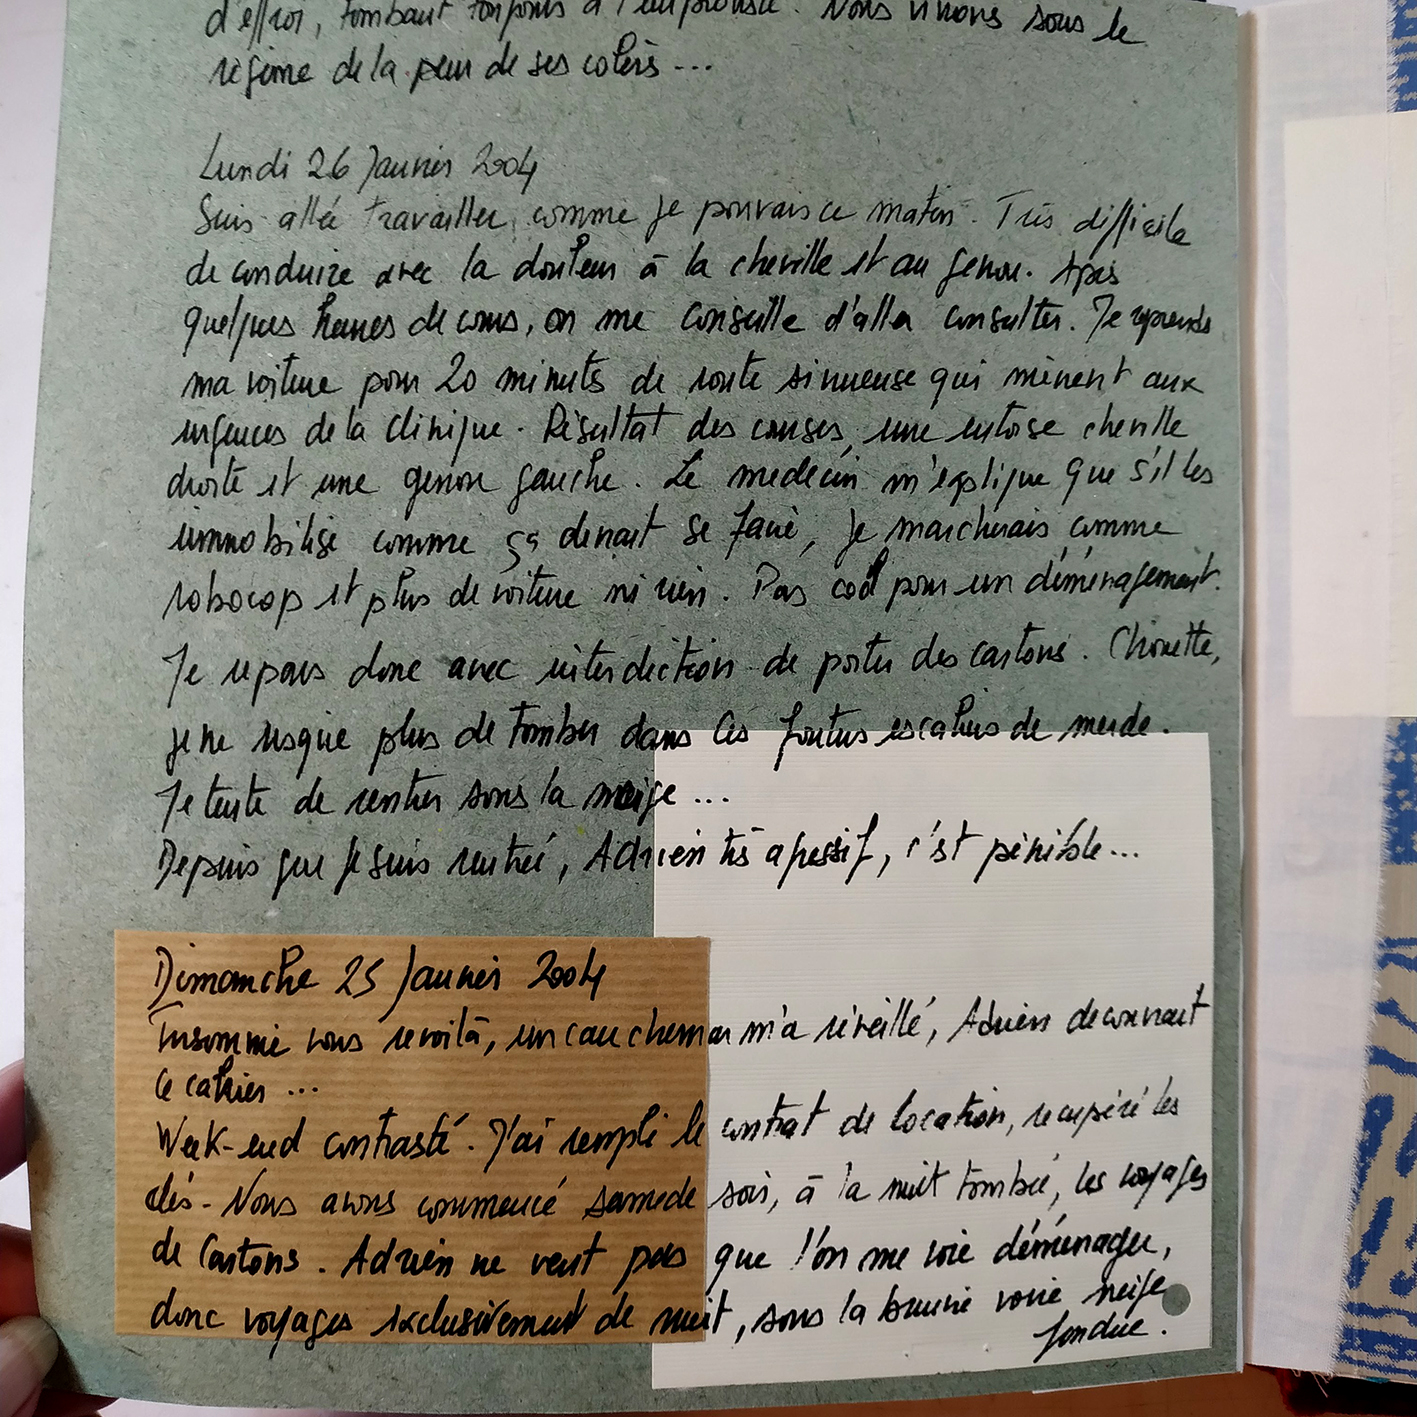 d'effroi, tombant toujours à l'improviste. Nous vivons sous le
régime de la peur de ses colères...
Lundi 26 Janvier 2004
Suis allée travailler, comme je pouvais ce matin. Très difficile
de conduire avec la douleur à la cheville et au genou. Après
quelques heures de cours, on me conseille d'aller consulter. Je reprends
ma voiture pour 20 minutes de route sinueuse qui mènent aux
urgences de la clinique. Résultat des courses, une entorse cheville
droite et une genou gauche. Le medecin m'explique que s'il les
immobilise comme ça devrait se faire, je marcherais comme
robocop et plus de voiture ni rien. Pas cool pour un déménagement.
Je repars donc avec interdiction de porter des cartons. Chouette,
je ne risque plus de tomber dans ces foutus escaliers de merde.
Je tente de rentrer sous la neige...
Depuis que je suis rentrée, Adrien très agressif, c'est pénible...
Dimanche 25 Janvier 2004
Insomnie vous revoilà, un cauchemar m'a réveillé, Adrien découvrait
ce cahier...
Week-end contrasté. J'ai rempli le contrat de location, récupéré les
clés. Nous avons commencé samedi soir, à la nuit tombée, les voyages
de cartons. Adrien ne veut pas que l'on me voie déménager,
donc voyages exclusivement de nuit, sous la bruine voire neige
fondue.